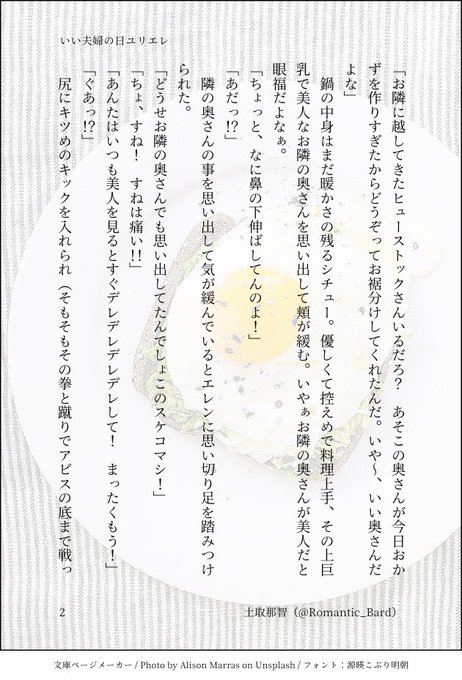 いい夫婦の日ユリエレ
「お隣に越してきたヒューストックさんいるだろ？　あそこの奥さんが今日おか
ずを作りすぎたからどうぞってお裾分けしてくれたんだ。いや～、いい奥さんだ
よな」
　鍋の中身はまだ暖かさの残るシチュー。優しくて控えめで料理上手、その上巨
乳で美人なお隣の奥さんを思い出して頬が緩む。いやぁお隣の奥さんが美人だと
眼福だよなぁ。
「ちょっと、なに鼻の下伸ばしてんのよ！」
「あだっ!?」
　隣の奥さんの事を思い出して気が緩んでいるとエレンに思い切り足を踏みつけ
られた。
「どうせお隣の奥さんでも思い出してたんでしょこのスケコマシ！」
「ちょ、すね！　すねは痛い!!」
「あんたはいつも美人を見るとすぐデレデレデレデレして！　まったくもう！」
「ぐあっ!?」
　尻にキツめのキックを入れられ（そもそもその拳と蹴りでアビスの底まで戦っ
2
土取那智（@Romantic_Bard）
文庫ページメーカー / Photo by Alison Marras on Unsplash / フォント：源暎こぶり明朝